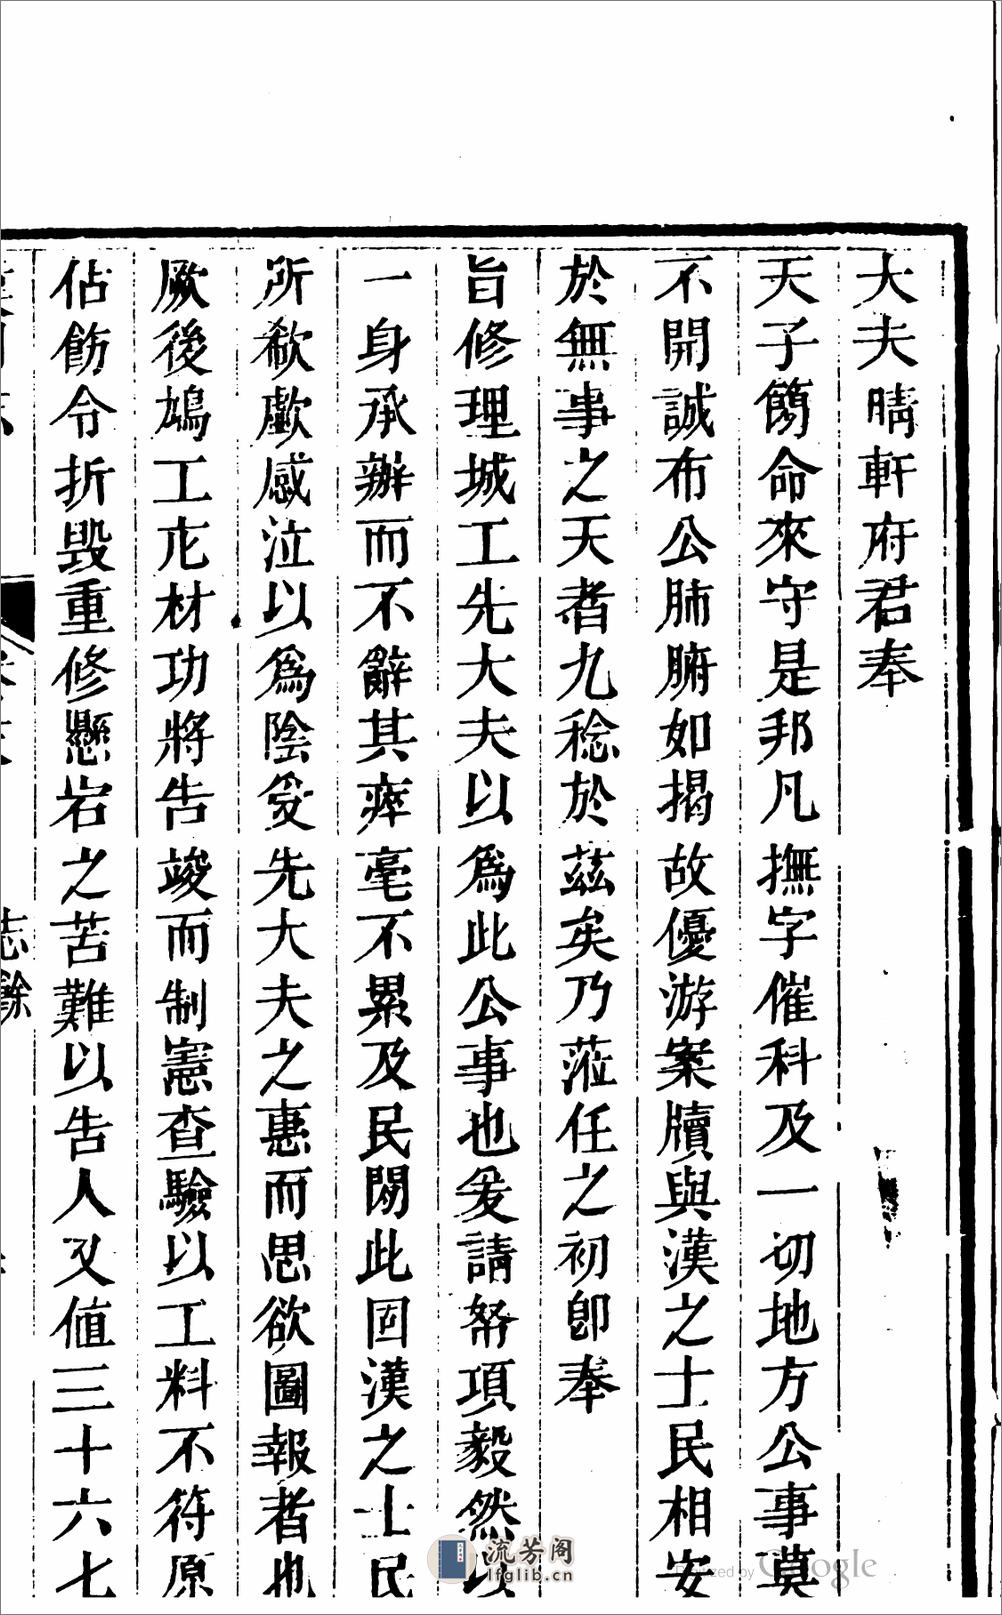 大夫晴軒府君奉
天子簡命來守是邦凡撫字催科及一切地方公事莫
不開誠布公肺腑如揭故優游案牘與漢之士民相安
於無事之天者九稔於茲矣乃蒞任之初卽奉
旨修理城工先大夫以爲此公事也爰請帑項毅然以
一身承辦而不辭其瘁毫不累及民閒此固漢之士民
所欷歔感泣以爲陰受先大夫之惠而思欲圖報者也
厥後鳩工庀材功將告竣而制憲查驗以工料不符原
估飭令折毀重修懸岩之苦難以告人又值三十六七
志餘
流芳阁
lfglib.cn
Digitized by Google